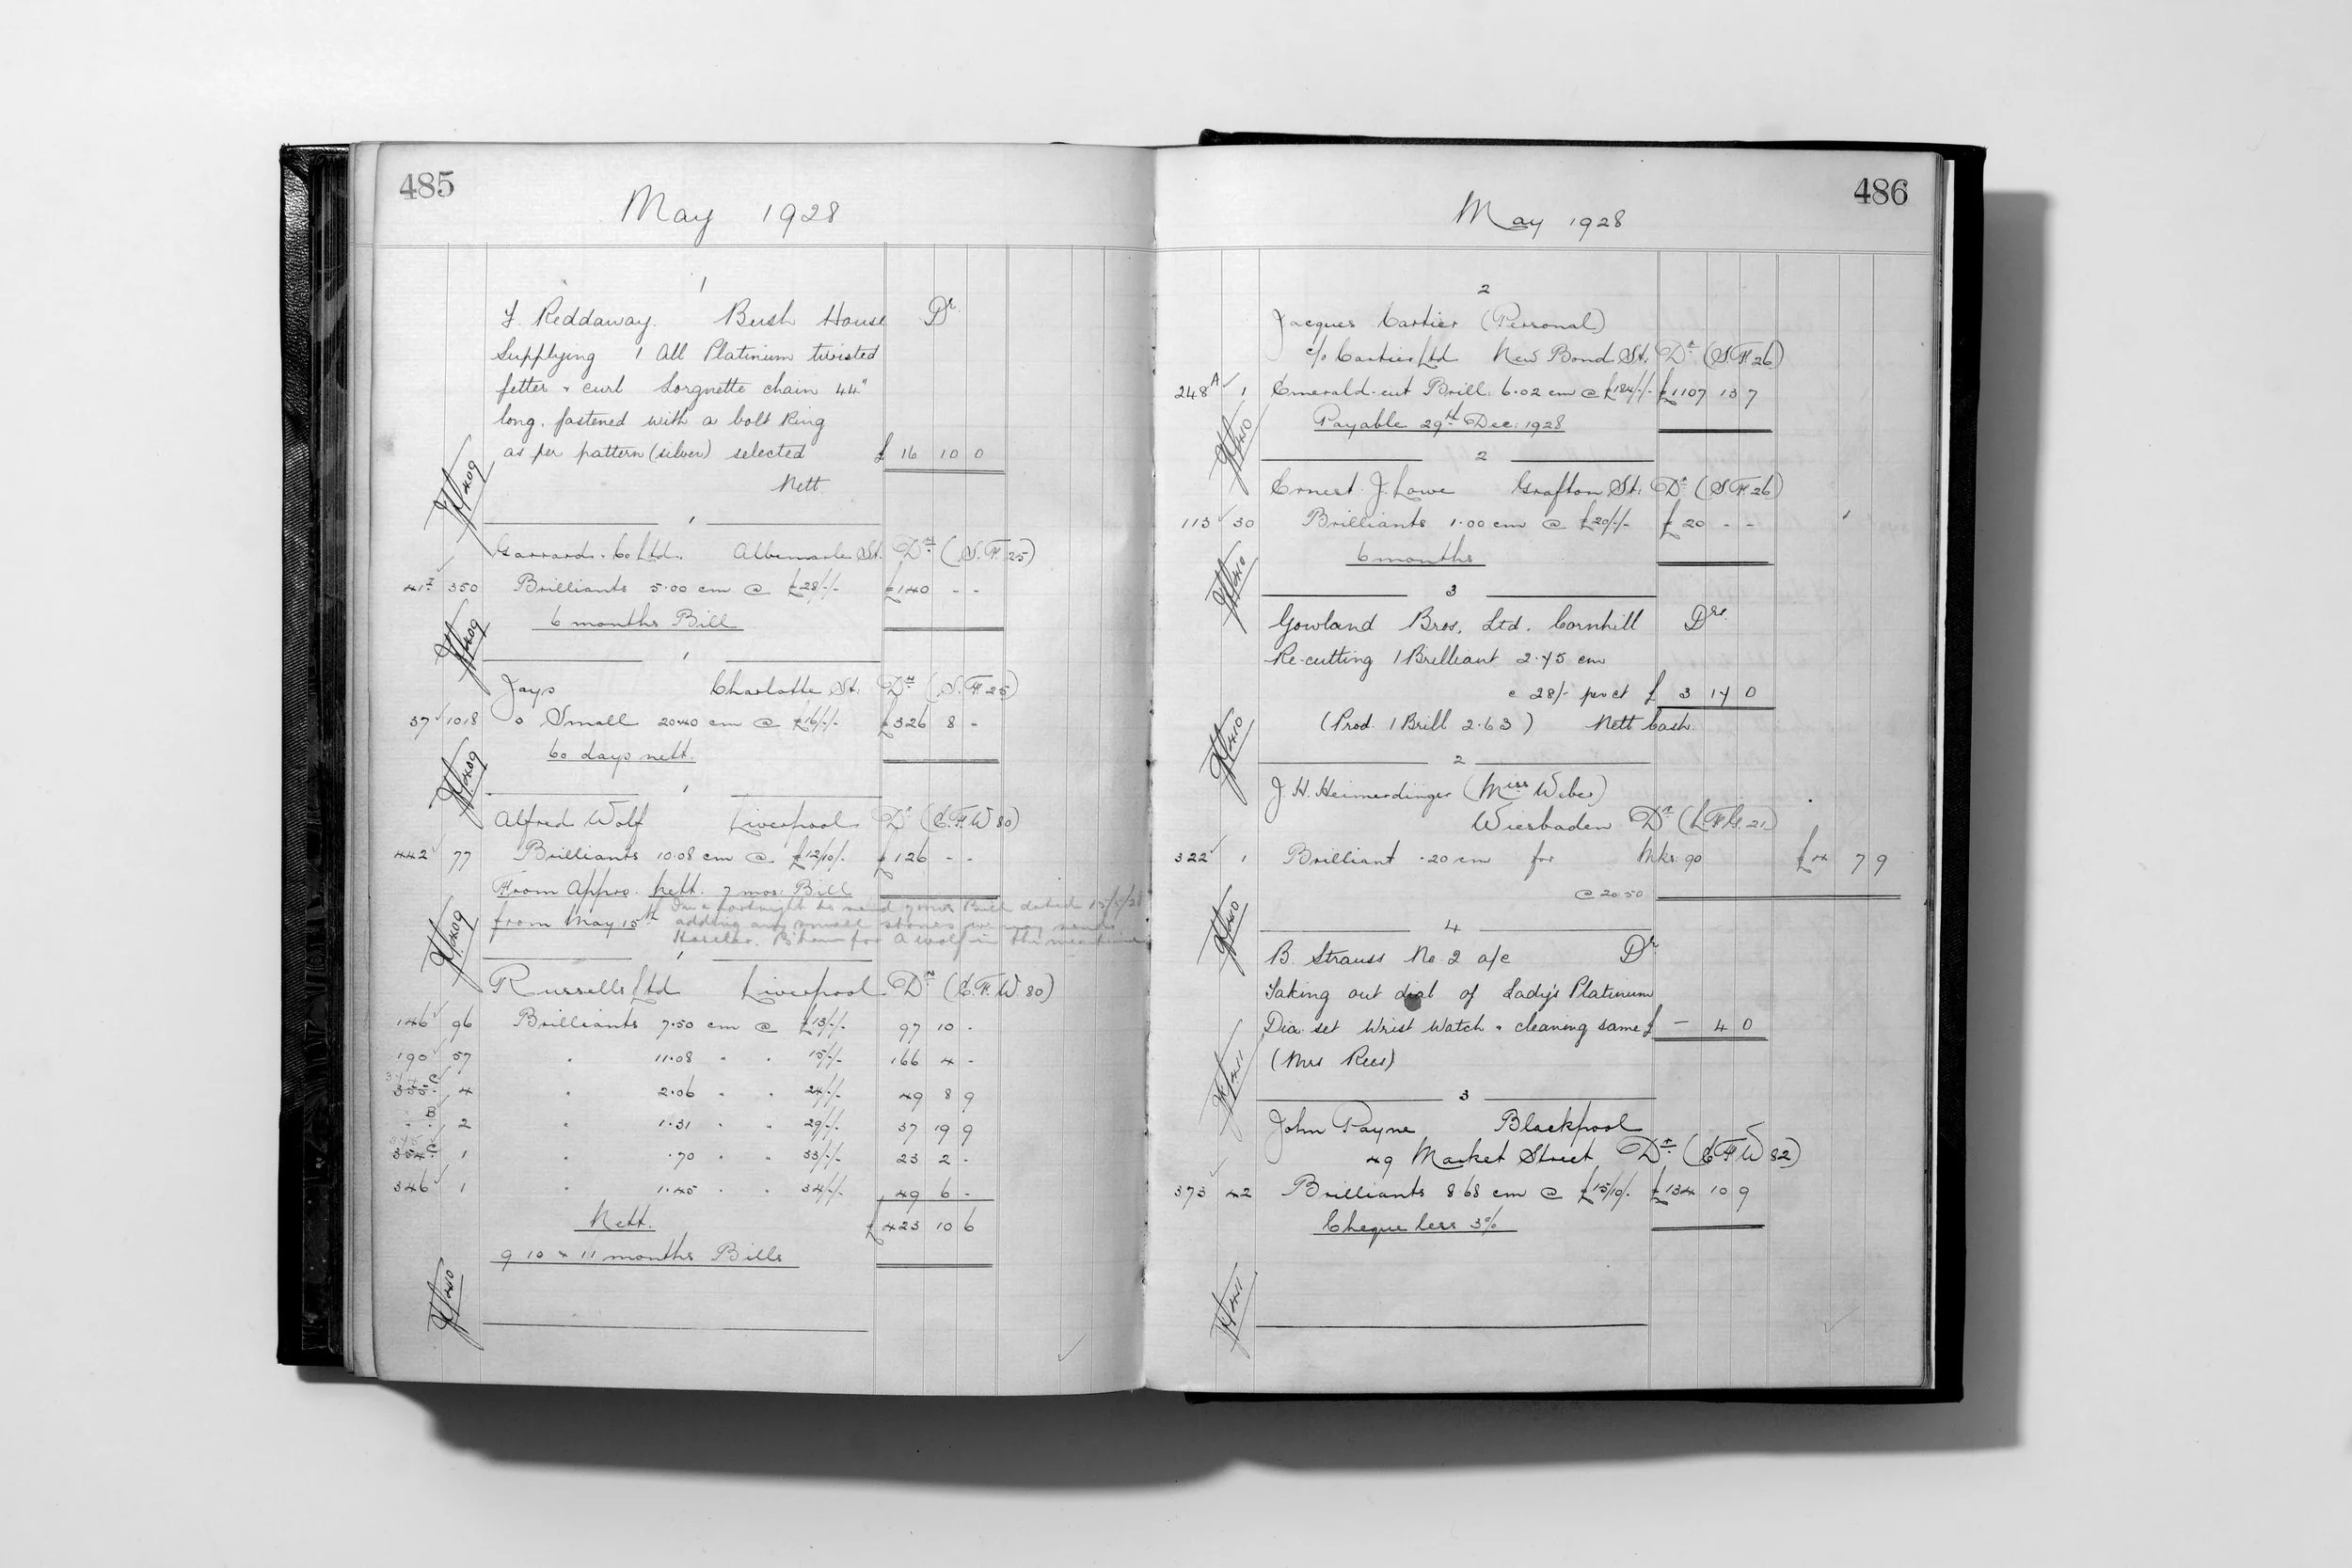 485
May 1928
1
F. Reddaway. Bush House Dr.
Supplying 1 All Platinum twisted
fetter & curb Lorgnette chain 44"
long, fastened with a bolt Ring
as per pattern (silver) selected £ 16 10 0
Nett.
409
1
Garrard & Co Ltd. Albemarle St. Drs (S.F. 25)
350 Brilliants 5.00 cm @ £28/-/- £140 - -
6 months Bill
409
1
Jays Charlotte St. Drs (S.F. 25)
37 1018 Small 20.40 cm @ £16/-/- £326 8 -
60 days nett.
409
1
Alfred Wolf Liverpool Dr (E.F.W 80)
442 77 Brilliants 10.08 cm @ £12/10/- £126 - -
From Appro. Nett. 7 mos: Bill
from May 15th
In a fortnight to send 7 mos Bill dated 15/5/28
adding any small stones we may send
for A Wolf in the meantime
409
1
Russells Ltd Liverpool Drs (E.F.W 80)
146 96 Brilliants 7.50 cm @ £13/-/- 97 10 -
190 57 " 11.08 " " 15/-/- 166 4 -
355 C 4 " 2.06 " " 24/-/- 49 8 9
" B 2 " 1.31 " " 29/-/- 37 19 9
354 C 1 " .70 " " 33/-/- 23 2 -
346 1 " 1.45 " " 34/-/- 49 6 -
Nett. £423 10 6
9 10 & 11 months Bills
410
486
May 1928
2
Jacques Cartier (Personal)
c/o Cartier Ltd New Bond St. Dr (S.F. 26)
248 A 1 Emerald-cut Brill: 6.02 cm @ £184/-/- £1107 13 7
Payable 29th Dec: 1928
410
2
Ernest J. Lowe Grafton St: Dr (S.F. 26)
113 30 Brilliants 1.00 cm @ £20/-/- £20 - -
6 months
410
3
Gowland Bros. Ltd. Cornhill Drs.
Re-cutting 1 Brilliant 2.75 cm
@ 28/- per ct £ 3 17 0
(Prod. 1 Brill 2.63) Nett Cash.
410
2
J. H. Heimerdinger (Miss Weber)
Wiesbaden Dr (L.F.G. 21)
322 1 Brilliant .20 cm for Mks: 90 £4 7 9
@ 20.50
410
4
B. Strauss No 2 a/c Dr.
Taking out dial of Lady's Platinum
Dia: set Wrist Watch & cleaning same £ - 4 0
(Mrs Rees)
411
3
John Payne Blackpool
49 Market Street Dr (E.F.W 82)
373 42 Brilliants 8.68 cm @ £15/10/- £134 10 9
Cheque less 3%
411